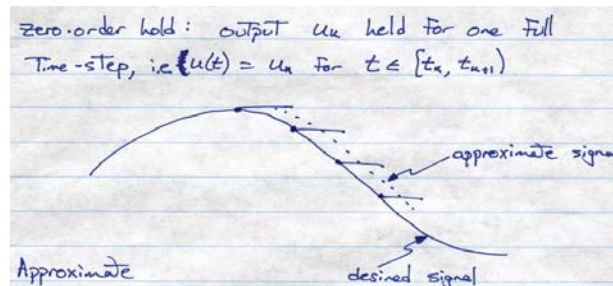 zero-order hold: output uₖ held for one full
Time-step, i.e. u(t) = uₖ for t ∈ [tₖ, tₖ₊₁)
approximate signal
desired signal
Approximate